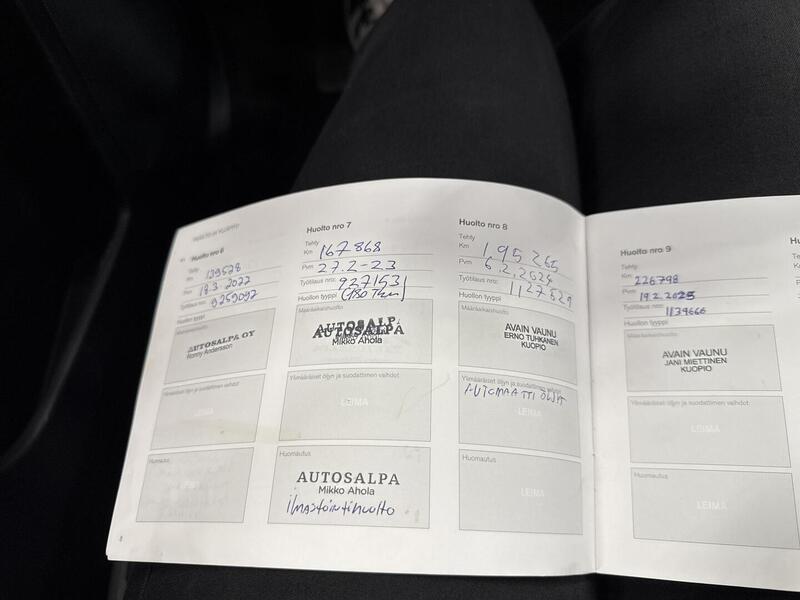 Huolto nro 6
Tehty
Km 139528
Pvm 18.3.2022
Työtilaus nro: 9259092
Huollon tyyppi
Määräaikaishuolto
AUTOSALPA OY
Ronny Andersson
Ylimääräiset öljyn ja suodattimen vaihdot
LEIMA
Huomautus
8
Huolto nro 7
Tehty
Km 167868
Pvm 27.2-23
Työtilaus nro: 9271531
Huollon tyyppi (180 Tkm)
AUTOSALPA
Mikko Ahola
Ylimääräiset öljyn ja suodattimen vaihdot
LEIMA
Huomautus
AUTOSALPA
Mikko Ahola
ilmastointihuolto
Huolto nro 8
Tehty
Km 195265
Pvm 6.2.2024
Työtilaus nro: 1127529
Huollon tyyppi
Määräaikaishuolto
AVAIN VAUNU
ERNO TUHKANEN
KUOPIO
Ylimääräiset öljyn ja suodattimen vaihdot
AUTOMAATTI ÖLJY
LEIMA
Huomautus
LEIMA
Huolto nro 9
Tehty
Km 226798
Pvm 19.2.2025
Työtilaus nro: 1139666
Huollon tyyppi
Määräaikaishuolto
AVAIN VAUNU
JANI MIETTINEN
KUOPIO
Ylimääräiset öljyn ja suodattimen vaihdot
LEIMA
Huomautus
LEIMA